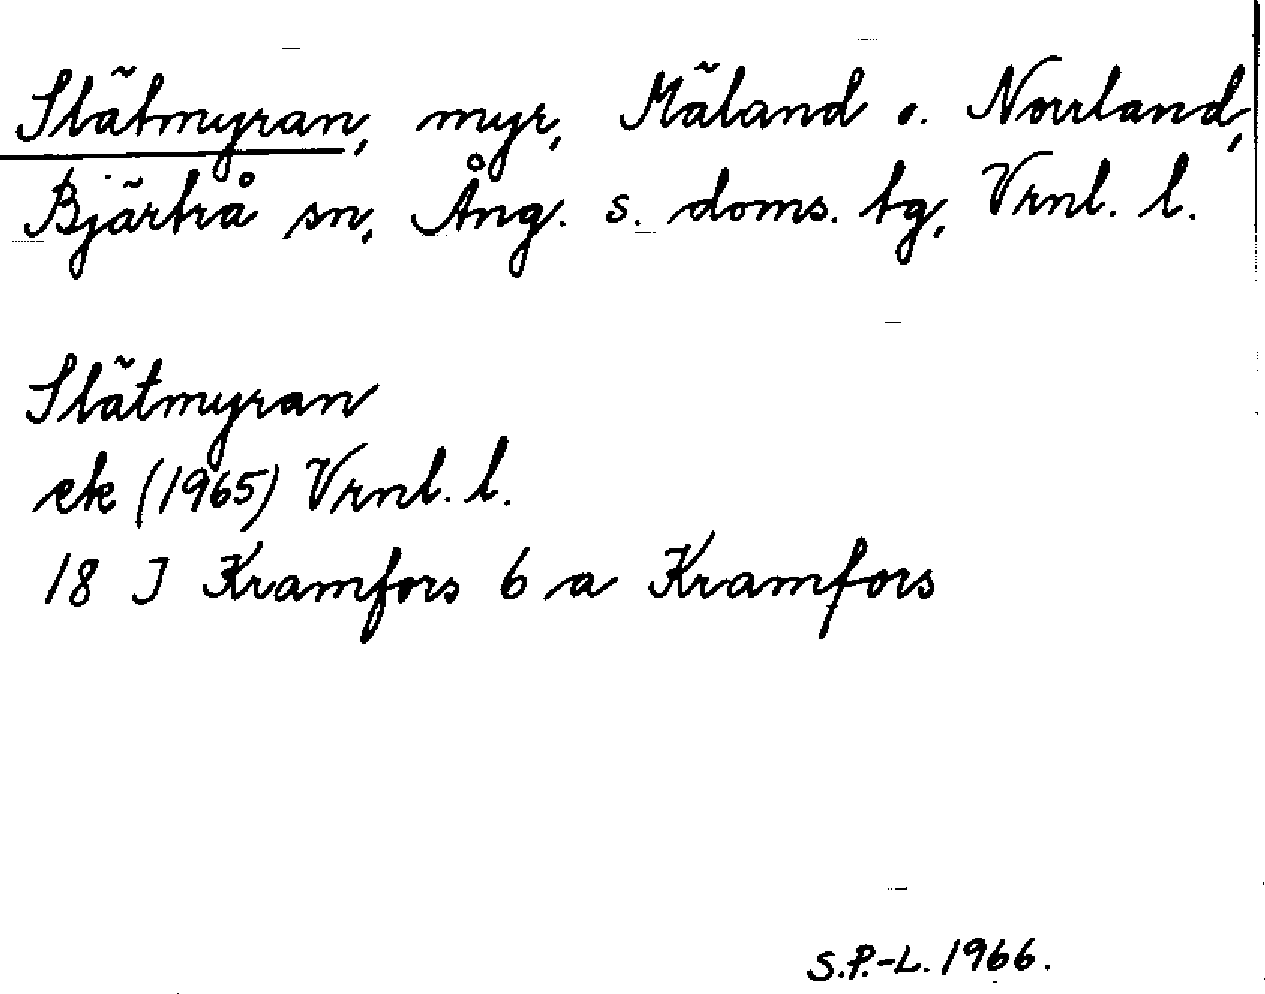 Slätmyran, myr, Mäland o. Norrland,
Bjärtrå sn, Ång. s. doms. tg, Vrnl. l.
Slätmyran
ek (1965) Vrnl. l.
18 J Kramfors 6 a Kramfors
S.P.-L. 1966.